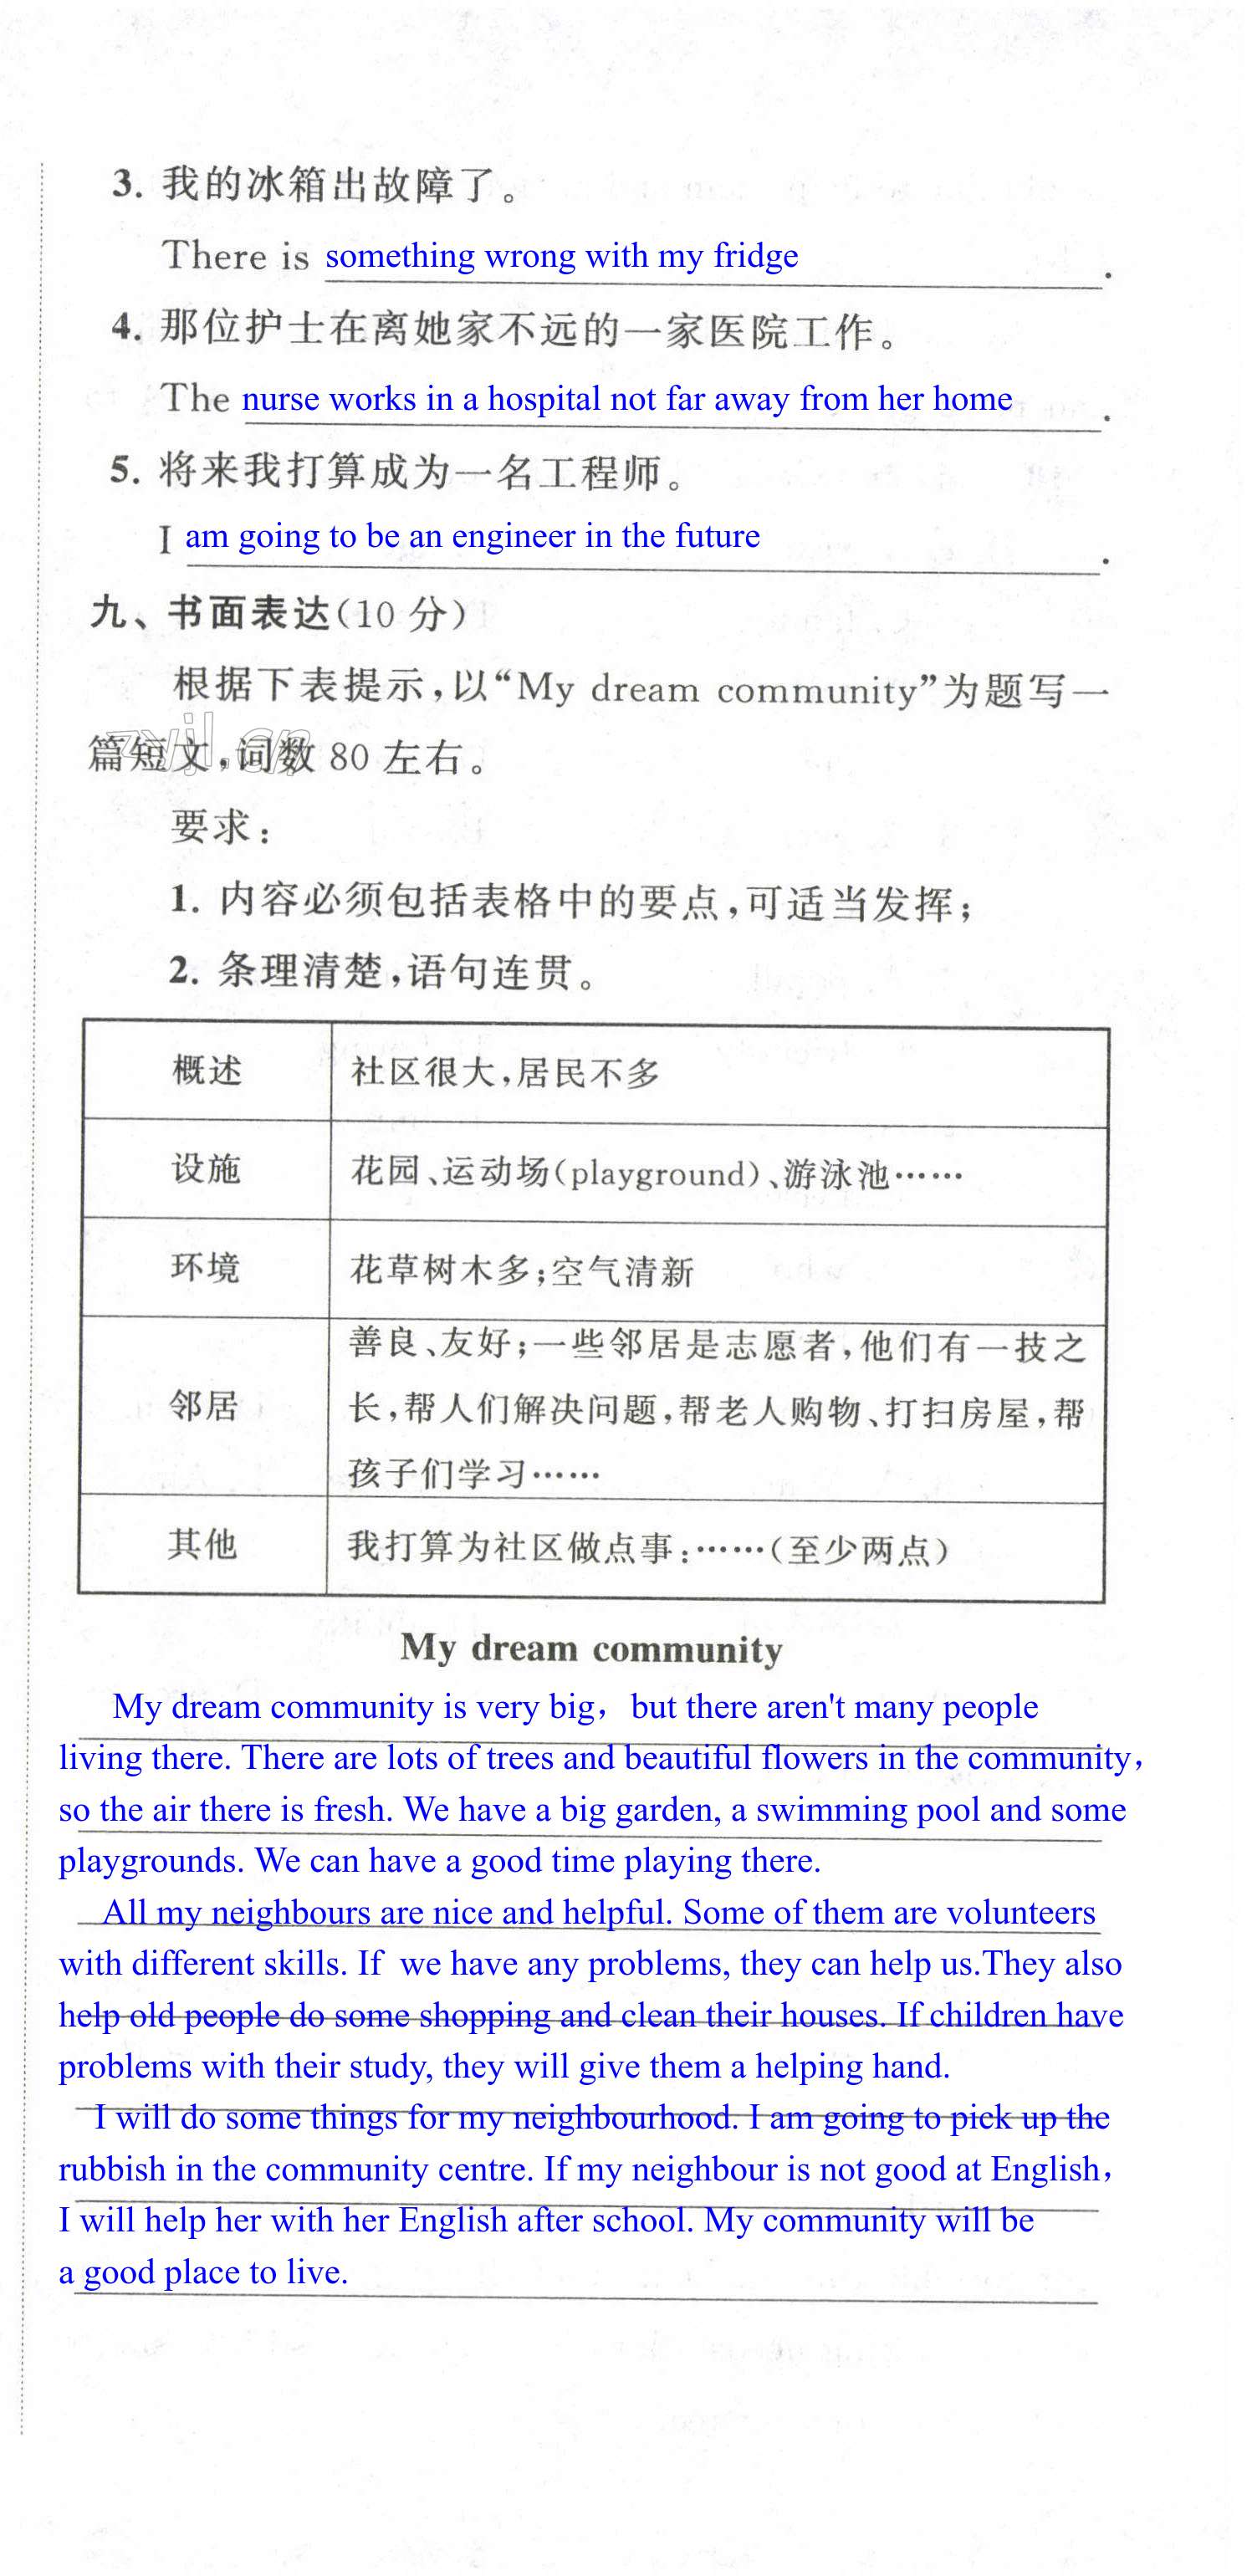 3. 我的冰箱出故障了。
There is something wrong with my fridge.
4. 那位护士在离她家不远的一家医院工作。
The nurse works in a hospital not far away from her home.
5. 将来我打算成为一名工程师。
I am going to be an engineer in the future.
九、书面表达(10 分)
根据下表提示,以“My dream community”为题写一
篇短文,词数 80 左右。
zyjl.cn
要求:
1. 内容必须包括表格中的要点,可适当发挥;
2. 条理清楚,语句连贯。
概述 社区很大,居民不多
设施 花园、运动场(playground)、游泳池……
环境 花草树木多;空气清新
邻居 善良、友好;一些邻居是志愿者,他们有一技之
长,帮人们解决问题,帮老人购物、打扫房屋,帮
孩子们学习……
其他 我打算为社区做点事:……(至少两点)
My dream community
My dream community is very big，but there aren't many people
living there. There are lots of trees and beautiful flowers in the community，
so the air there is fresh. We have a big garden, a swimming pool and some
playgrounds. We can have a good time playing there.
All my neighbours are nice and helpful. Some of them are volunteers
with different skills. If  we have any problems, they can help us.They also
help old people do some shopping and clean their houses. If children have
problems with their study, they will give them a helping hand.
I will do some things for my neighbourhood. I am going to pick up the
rubbish in the community centre. If my neighbour is not good at English，
I will help her with her English after school. My community will be
a good place to live.